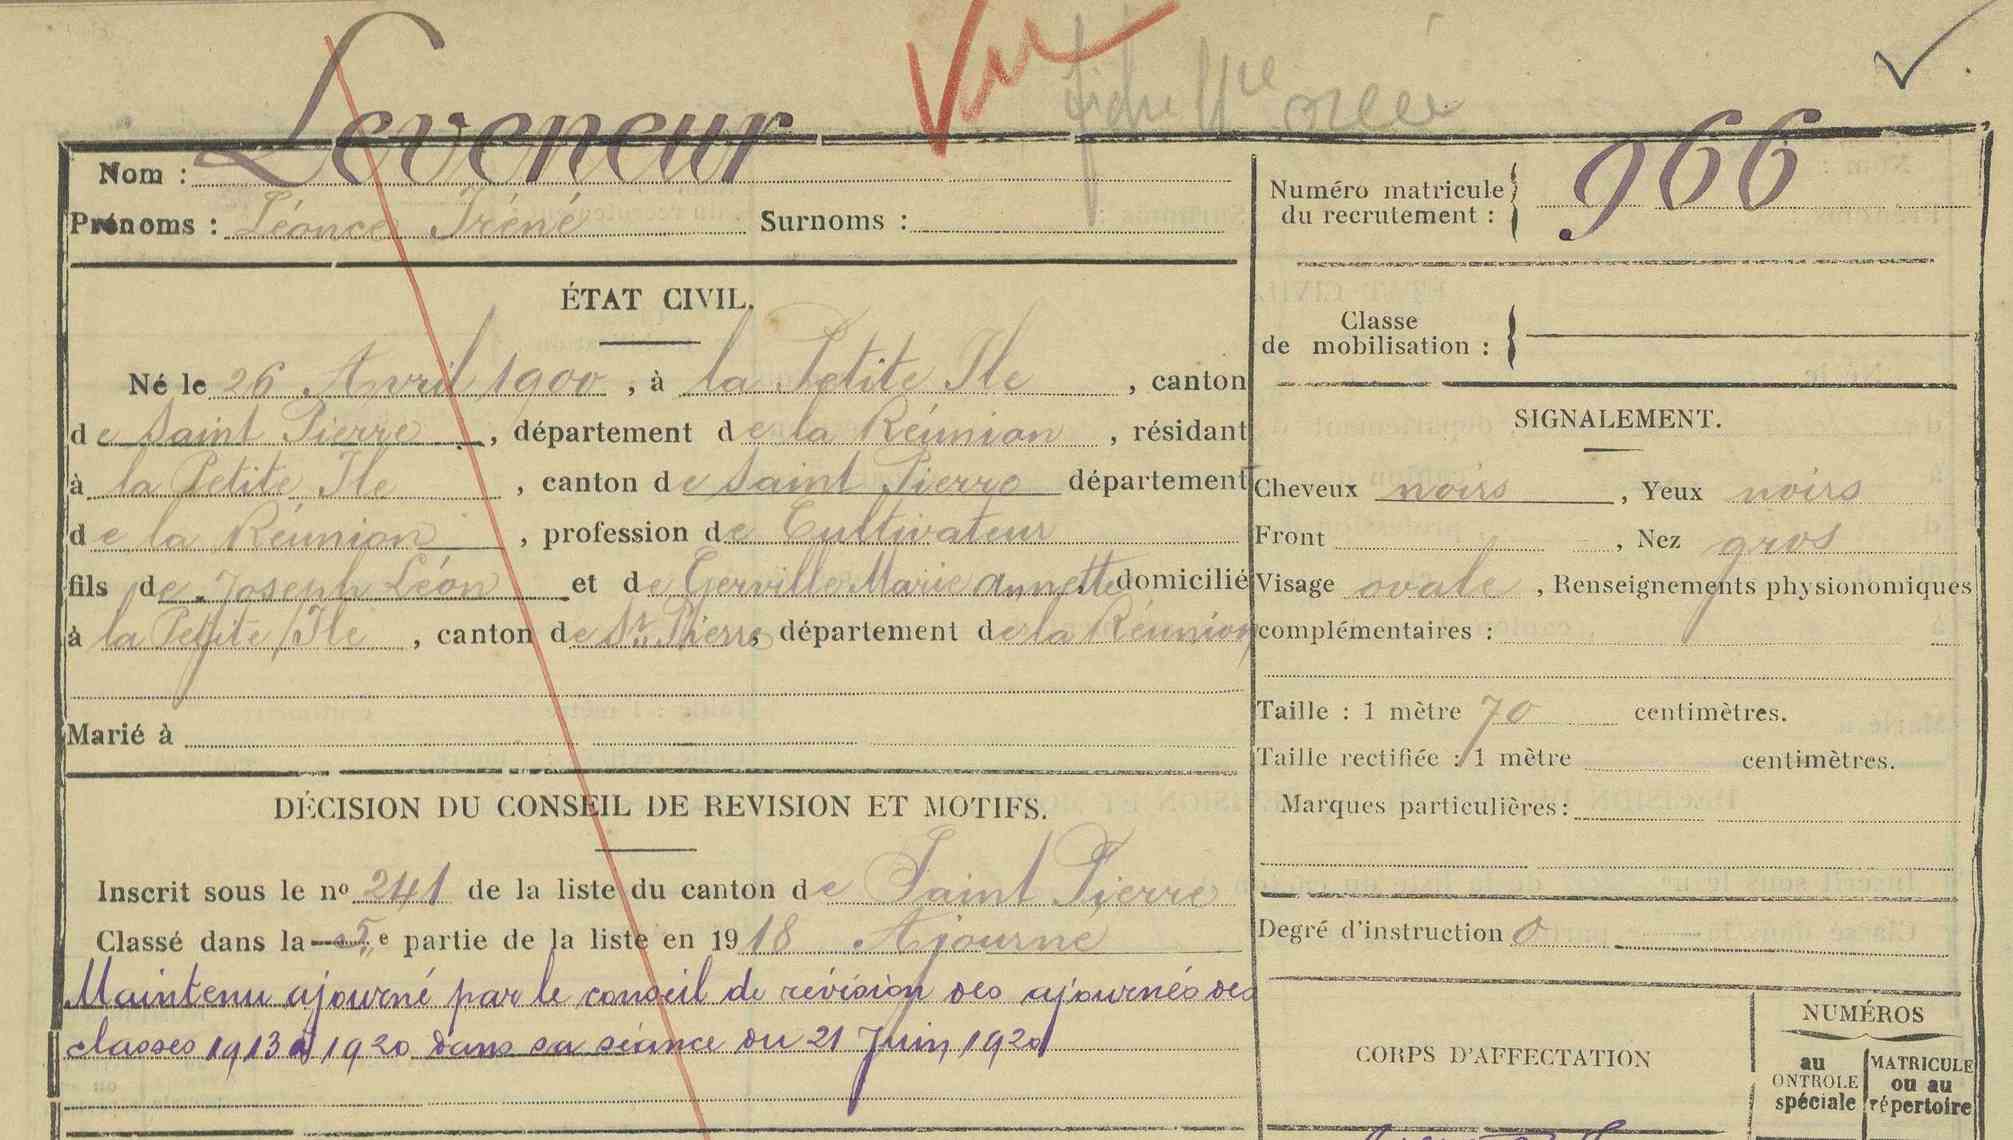 Vu fiche créée
Nom : Leveneur
Prénoms : Léonce Iréné Surnoms :
ÉTAT CIVIL.
Né le 26 Avril 1900, à la Petite Ile, canton
de Saint Pierre, département de la Réunion, résidant
à la Petite Ile, canton de Saint Pierre département
de la Réunion, profession de Cultivateur
fils de Joseph Léon et de Gerville Marie Annette domicilié
à la Petite Ile, canton de St Pierre, département de la Réunion
Marié à
DÉCISION DU CONSEIL DE REVISION ET MOTIFS.
Inscrit sous le nº 241 de la liste du canton de Saint Pierre
Classé dans la 5e partie de la liste en 1918 Ajourné
Maintenu ajourné par le conseil de révision des ajournés des
classes 1913 à 1920 dans sa séance du 21 Juin 1920
Numéro matricule
du recrutement : 966
Classe
de mobilisation :
SIGNALEMENT.
Cheveux noirs, Yeux noirs
Front , Nez gros
Visage ovale, Renseignements physionomiques
complémentaires :
Taille : 1 mètre 70 centimètres.
Taille rectifiée : 1 mètre centimètres.
Marques particulières :
Degré d'instruction 0
CORPS D'AFFECTATION
NUMÉROS
au
ONTROLE
spéciale
MATRICULE
ou au
répertoire